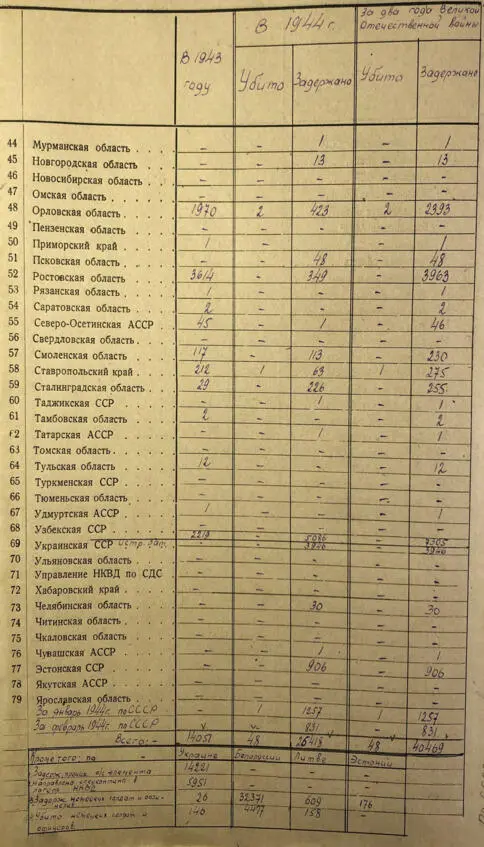 В 1943 году
В 1944 г.
За два года Великой Отечественной Войны
Убито Задержано Убито Задержано
44 Мурманская область . . . – – 1 – 1
45 Новгородская область – – 13 – 13
46 Новосибирская область . . – – – – –
47 Омская область . . . . – – – – –
48 Орловская область . . . . 1970 2 423 2 2393
49 Пензенская область . . . – – – – –
50 Приморский край . . . . 1 – – – 1
51 Псковская область . . . . – – 48 – 48
52 Ростовская область . . . 3614 – 349 – 3963
53 Рязанская область . . . . 1 – – – 1
54 Саратовская область . . . 2 – – – 2
55 Северо-Осетинская АССР . . 45 – 1 – 46
56 Свердловская область . . . – – – – –
57 Смоленская область . . . 117 – 113 – 230
58 Ставропольский край . . . 212 1 63 1 275
59 Сталинградская область . . 29 – 226 – 255
60 Таджикская ССР . . . . – – 1 – 1
61 Тамбовская область . . . 2 – – – 2
62 Татарская АССР . . . . – – 1 – 1
63 Томская область . . . . – – – – –
64 Тульская область . . . . 12 – – – 12
65 Туркменская ССР . . . – – – – –
66 Тюменьская область . . . – – – – –
67 Удмуртская АССР . . . . 1 – – – 1
68 Узбекская ССР . . . . – – – – –
69 Украинская ССР 2219 – 5086 – 7305
– – 3946 – 3946
70 Ульяновская область . . . – – – – –
71 Управление НКВД по СДС – – – – –
72 Хабаровский край . . . . – – – – –
73 Челябинская область . . . – – 30 – 30
74 Читинская область . . . – – – – –
75 Чкаловская область . . . – – – – –
76 Чувашская АССР . . . . – – 1 – 1
77 Эстонская ССР . . . . – – 906 – 906
78 Якутская АССР . . . . – – – – –
79 Ярославская область . . . – – – – –
За январь 1944г. по СССР – 1 1257 1 1257
За февраль 1944г. по СССР – 831 – 831
Всего: – 14051 48 26418 48 40469
Кроме того: по – Украине Белоруссии Литве Эстонии
14221
лагеря НКВД 5951
26 32371 609 176
Убито немецких солдат и офицеров 140 158